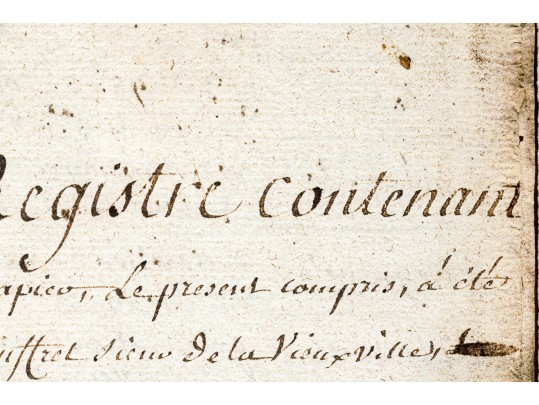 Registre contenant
apier, Le present compris, à été
uffret sieur de la Vieuxville,